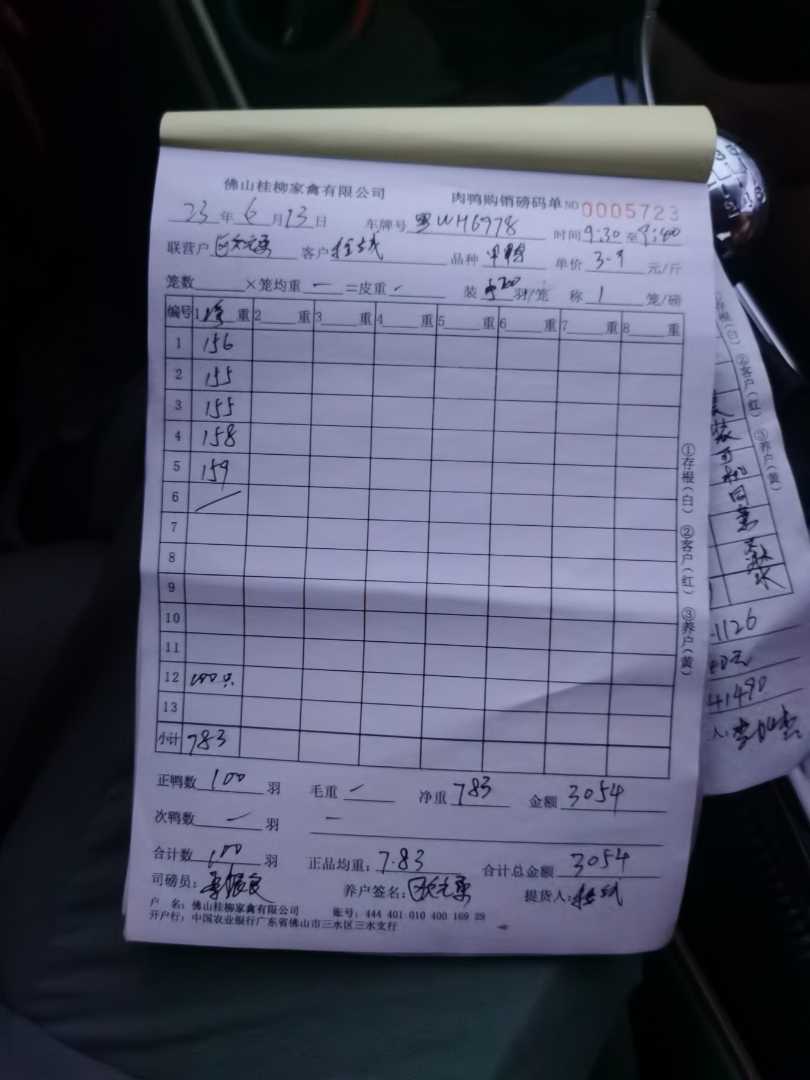 佛山桂柳家禽有限公司 肉鸭购销磅码单 NO 0005723
23年6月13日 车牌号 粤WH6978 时间9:30至9:40
联营户 客户 品种 单价 3.9 元/斤
笼数 ×笼均重 — =皮重 - 装 羽/笼 称 1 笼/磅
编号 1 重 2 重 3 重 4 重 5 重 6 重 7 重 8 重
1 156
2 155
3 155
4 158
5 159
6 /
7
8
9
10
11
12 100只
13
小计 783
正鸭数 100 羽 毛重 — 净重 783 金额 3054
次鸭数 — 羽 —
合计数 100 羽 正品均重: 7.83 合计总金额 3054
司磅员: 养户签名: 提货人:
户 名: 佛山桂柳家禽有限公司 账号: 444 401 010 400 169 29
开户行: 中国农业银行广东省佛山市三水区三水支行
①存根(白) ②客户(红) ③养户(黄)
存根(白) ②客户(红) ③养户(黄)
1126
41490